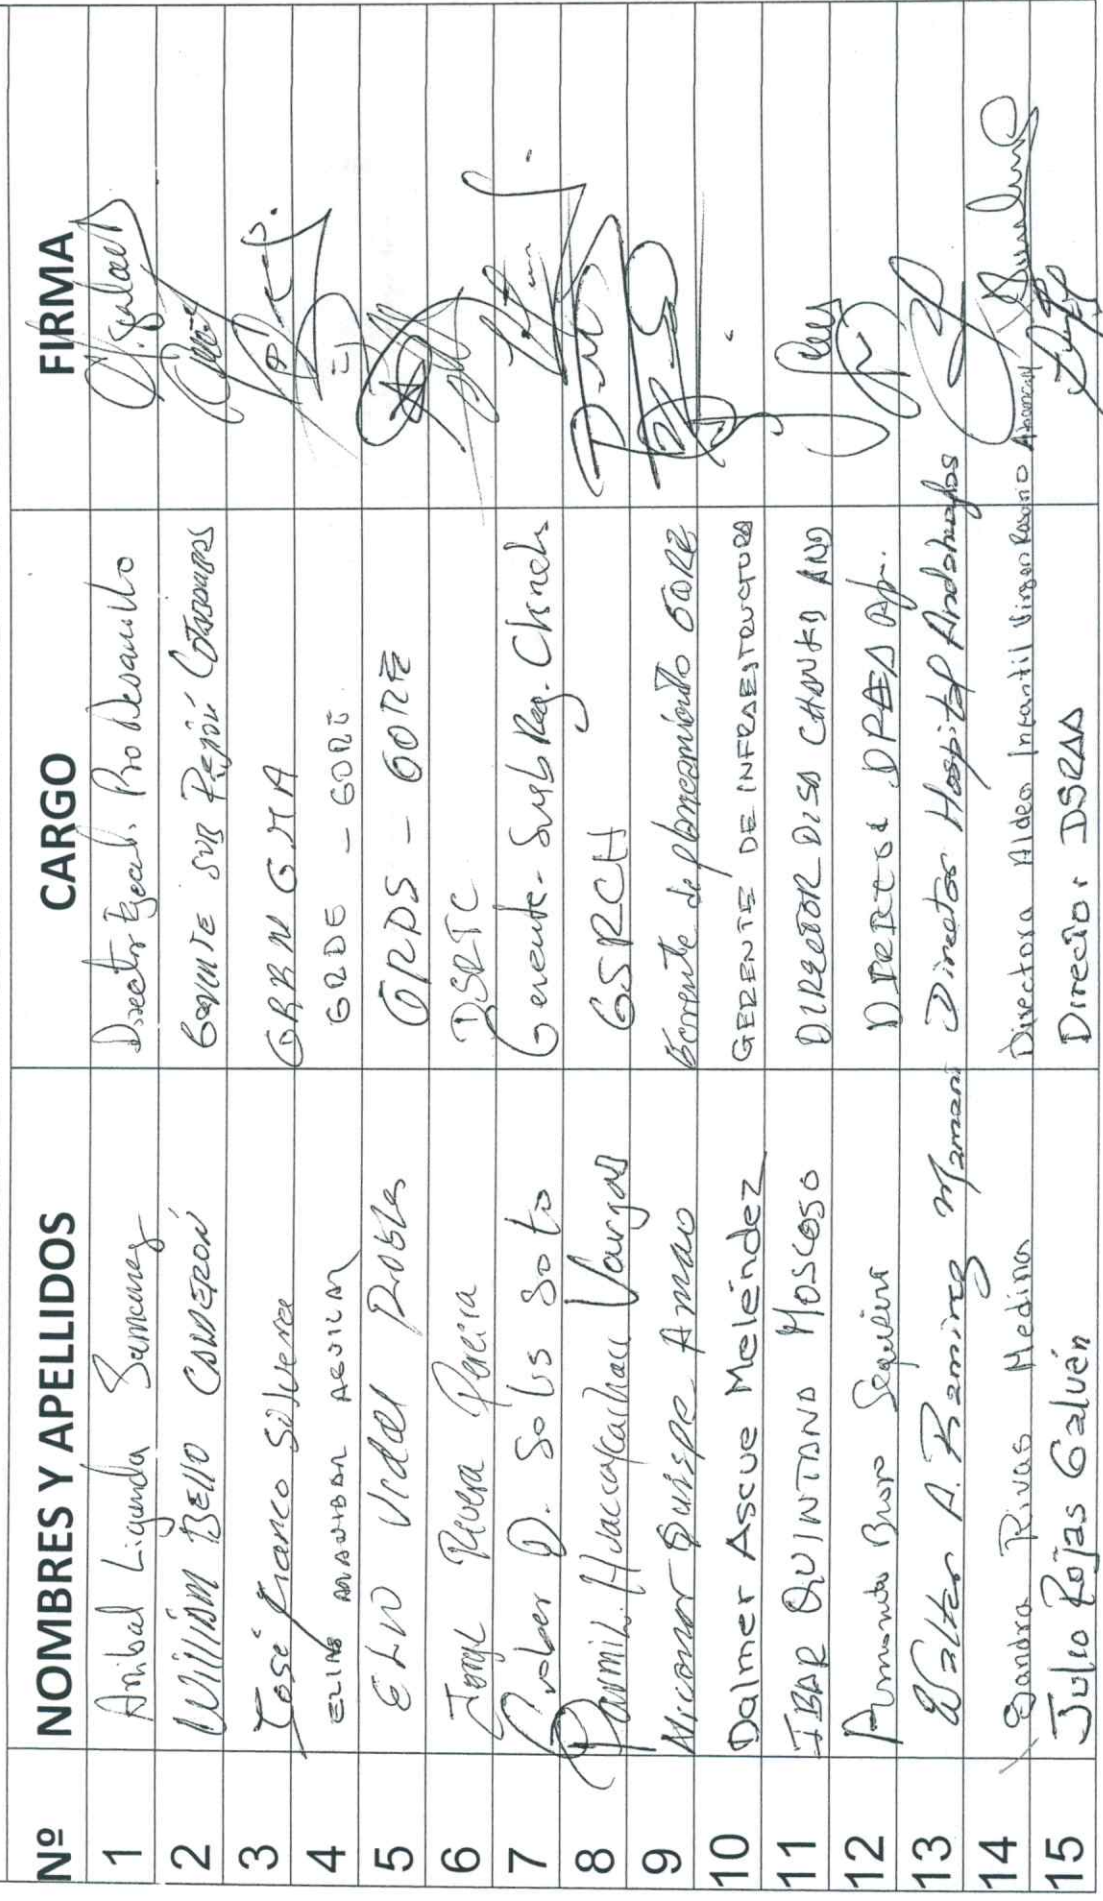 Nº NOMBRES Y APELLIDOS CARGO FIRMA
1 Anibal Ligarda Samanez Director Ejecut. Pro Desarrollo
2 William Bello Canderón Gerente Sub Región Cotabambas
3 José Franco Silvera GRRNGMA
4 ELIAS ARANIBAR AGUILAR GRDE - GORE
5 ELIO Vidal Robles GRDS - GORE
6 Jorge Rivera Pereira DSRTC
7 D. Solis Soto Gerente - Sub Reg. Chinch
8 Vargas GSRCH
9 Nicanor Quispe Amao Gerente de planeamiento GORE
10 Dalmer Ascue Meléndez GERENTE DE INFRAESTRUCTURA
11 IBAR QUINTANA MOSCOSO DIRECTOR DISA CHANKA AND
12 Armando Bravo DIRECTOR DREA Ap.
13 Walter A. Ramirez Mamani Director Hospital Andahuaylas
14 Sandra Rivas Medina Directora Aldea Infantil Virgen Rosario Abancay
15 Julio Rojas Galván Director DSRAA